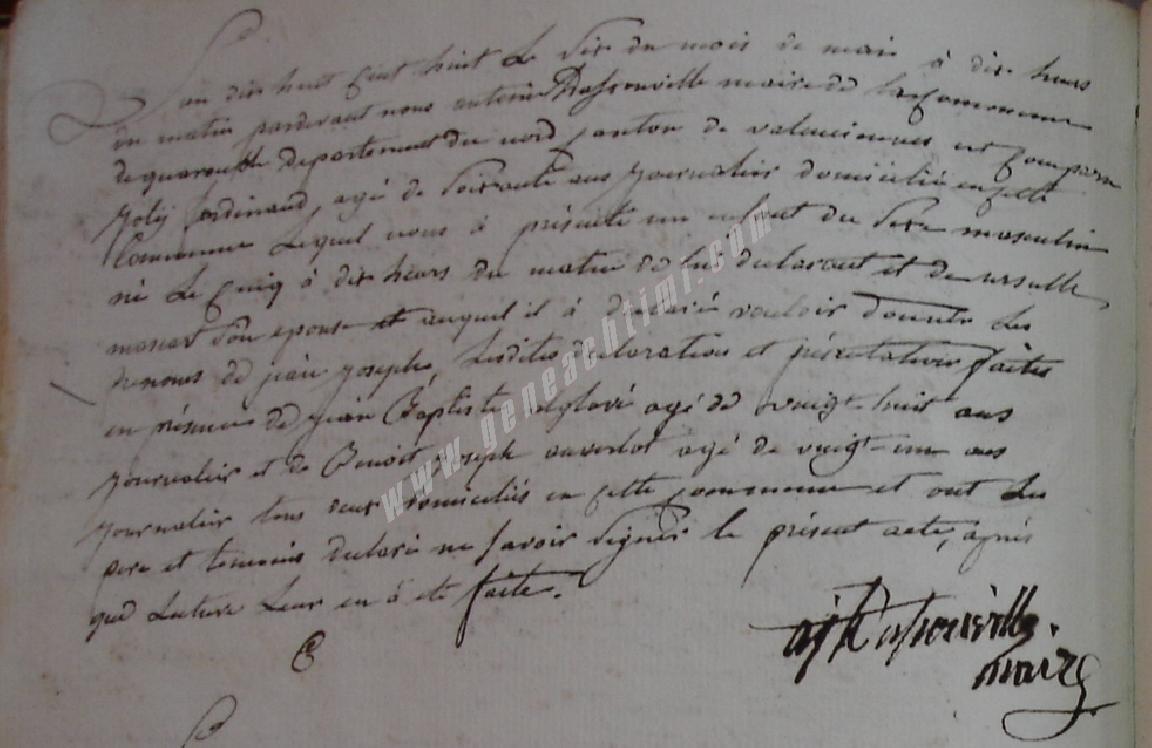 L'an dix huit cent huit le six du mois de mai à dix heurs
du matin pardevant nous antoine Dassonville maire de la commune
de quarouble departement du nord canton de valenciennes est comparu
Joly ferdinand, agé de soixante ans journalier domicilié en cette
Commune lequel nous à présenté un enfant du sexe masculin
né le cinq à dix heurs du matin de lui declarant et de ursulle
monart son epouse et auquel il à declaré vouloir donner les
prenoms de jean joseph, lesdites declaration et présentation faites
en présence de jean Baptiste agé de vingt huit ans
journalier et de Benoit joseph agé de vingt-un ans
journalier tous deux domiciliés en cette commune et ont les
pere et temoins declaré ne savoir signer le présent acte, après
que lecture leur en à été faite.
aj Dassonville
maire
www.geneachtimi.com